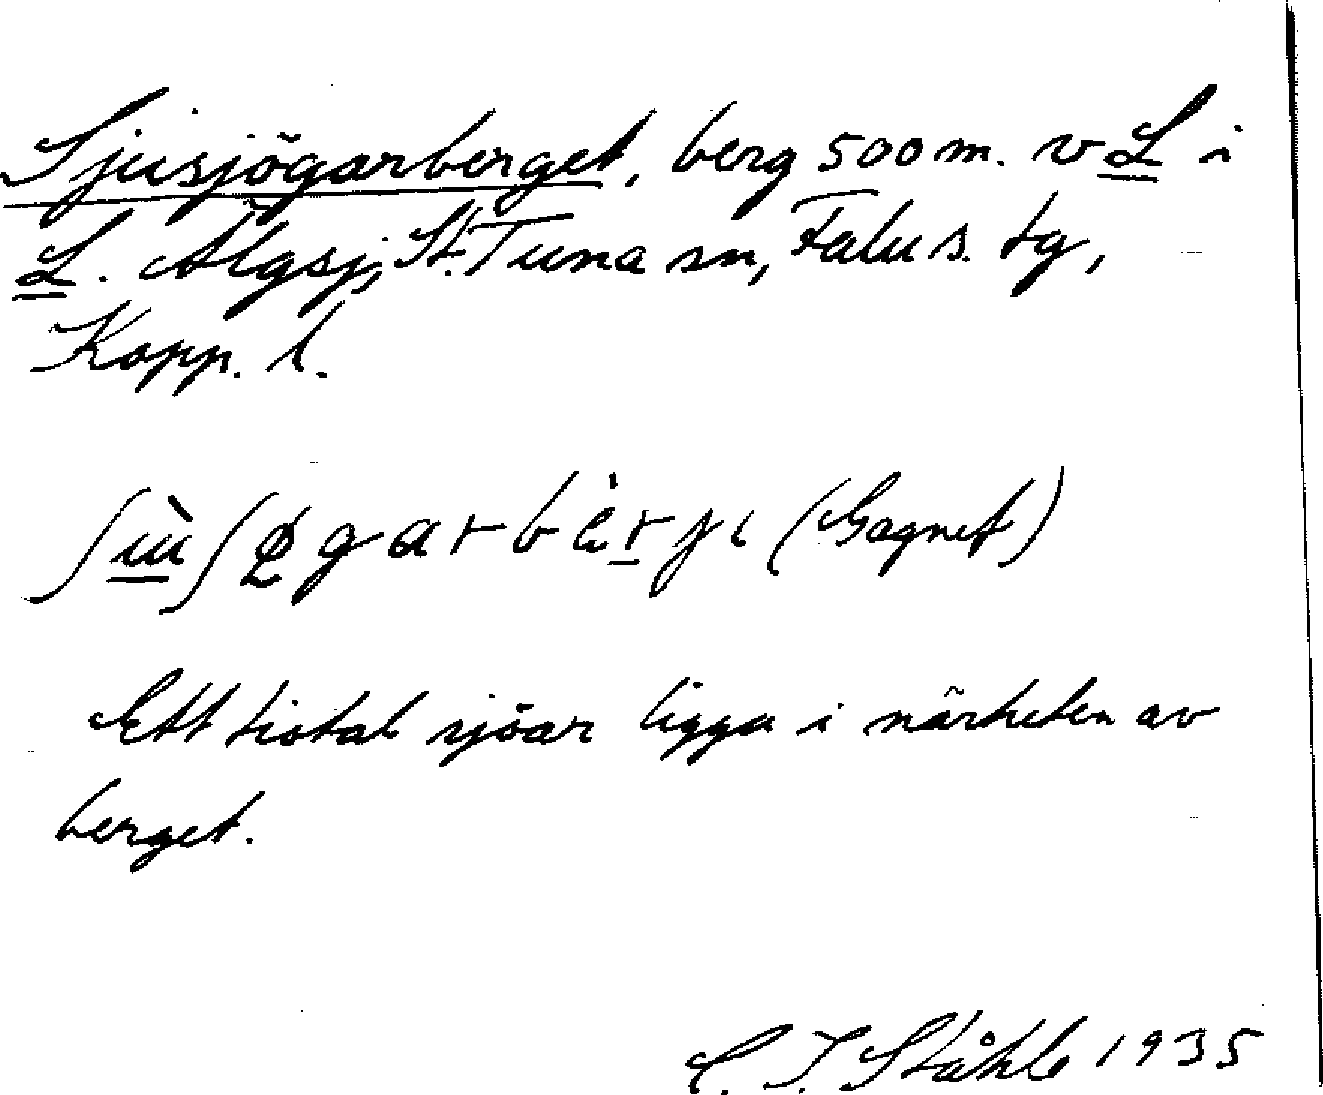 Sjusjögarberget, berg 500 m. v L i
L. Älgsj, St. Tuna sn, Falu s. tg,
Kopp. l.
(Gagnef)
Ett tiotal sjöar ligga i närheten av
berget.
C. I. Ståhle 1935